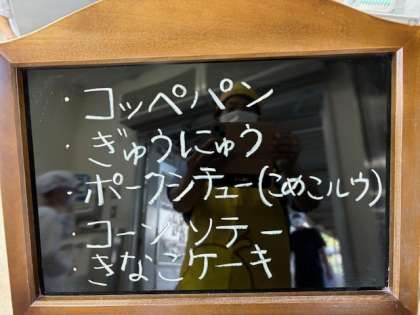 ・コッペパン
・ぎゅうにゅう
・ポークシチュー(こめこルウ)
・コーンソテー
・きなこケーキ